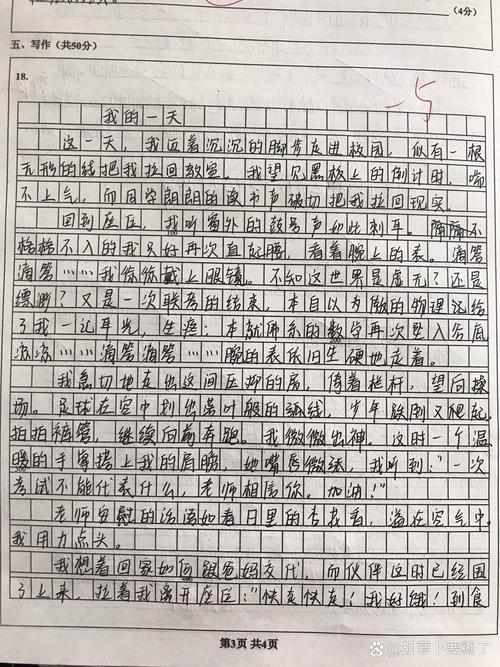 (4分)
五、写作（共50分）
18.
-5
我的一天
这一天，我迈着沉沉的脚步走进校园，似有一根
无形的线把我拉回教室。我望见黑板上的倒计时，喘
不上气，而同学朗朗的读书声破切把我拉回现实。
回到座区，我听窗外的鼓号声如此刺耳。
格格不入的我只好再次直起腰，看着腕上的表。滴答
滴答……我偷偷戴上眼镜。不知这世界是虚无？还是
缥缈？又是一次联考的结束，本自以为傲的物理还给
了我一记耳光，生涯；本就师系的数学再次坠入谷底
滴答滴答……腕的表依旧生硬地走着。
我急切地走出这间压抑的房，倚着栏杆，望向操
场。足球在空中划出落叶般的弧线，少年跌倒又爬起，
拍拍裤管，继续向前奔跑。我微微出神，这时一个温
暖的手掌搭上我的肩膀，她嘴唇微绻，我听到："一次
考试不能代表什么，老师相信你。加油！"
老师安慰的话语如春日里的杏花香，溢在空气中。
我用力点头。
我想着回家如何跟爸妈交代，而伙伴这时已经围
了上来，拉着我离开座区："快走快走！我好饿！到食
第3页 共4页
胡萝卜要糊了